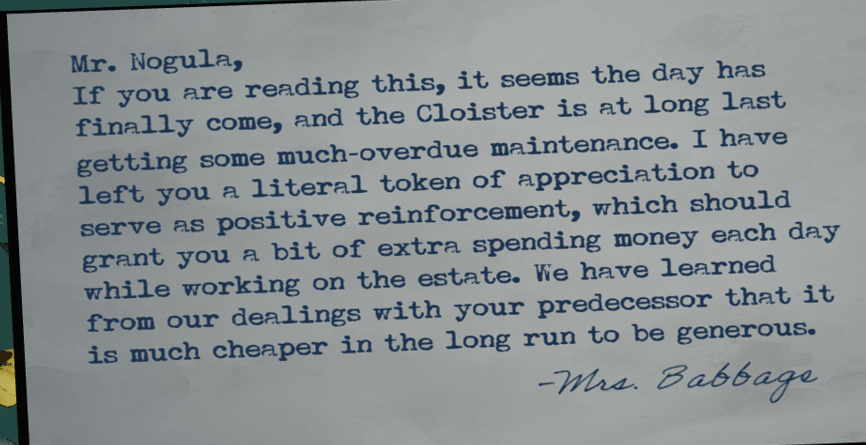 Mr. Nogula,
If you are reading this, it seems the day has
finally come, and the Cloister is at long last
getting some much-overdue maintenance. I have
left you a literal token of appreciation to
serve as positive reinforcement, which should
grant you a bit of extra spending money each day
while working on the estate. We have learned
from our dealings with your predecessor that it
is much cheaper in the long run to be generous.
-Mrs. Babbage